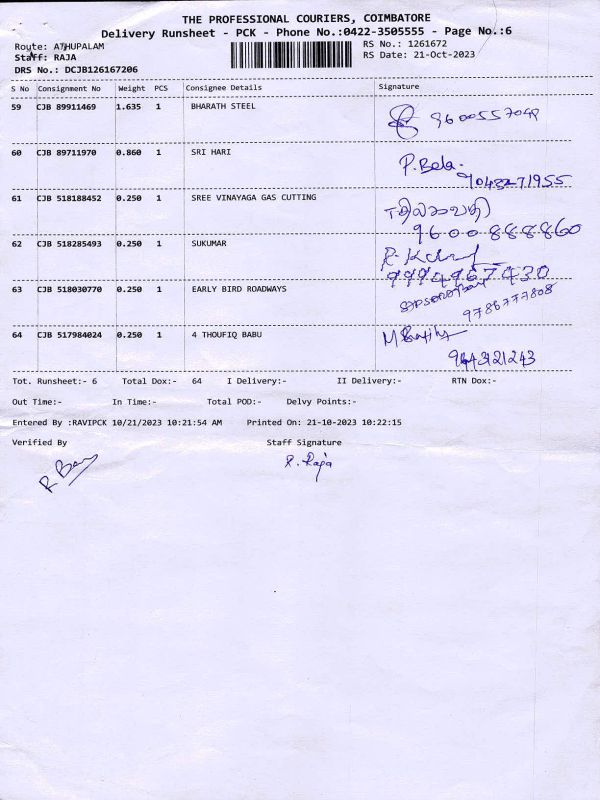 THE PROFESSIONAL COURIERS, COIMBATORE
Delivery Runsheet - PCK - Phone No.:0422-3505555 - Page No.:6
Route: ATHUPALAM RS No.: 1261672
Staff: RAJA RS Date: 21-Oct-2023
DRS No.: DCJB126167206
S No Consignment No Weight PCS Consignee Details Signature
59 CJB 89911469 1.635 1 BHARATH STEEL
60 CJB 89711970 0.860 1 SRI HARI P. Bela.
61 CJB 518188452 0.250 1 SREE VINAYAGA GAS CUTTING
9600888860
62 CJB 518285493 0.250 1 SUKUMAR
63 CJB 518030770 0.250 1 EARLY BIRD ROADWAYS
9786777808
64 CJB 517984024 0.250 1 4 THOUFIQ BABU
Tot. Runsheet:- 6 Total Dox:- 64 I Delivery:- II Delivery:- RTN Dox:-
Out Time:- In Time:- Total POD:- Delvy Points:-
Entered By :RAVIPCK 10/21/2023 10:21:54 AM Printed On: 21-10-2023 10:22:15
Verified By Staff Signature
R. Raja